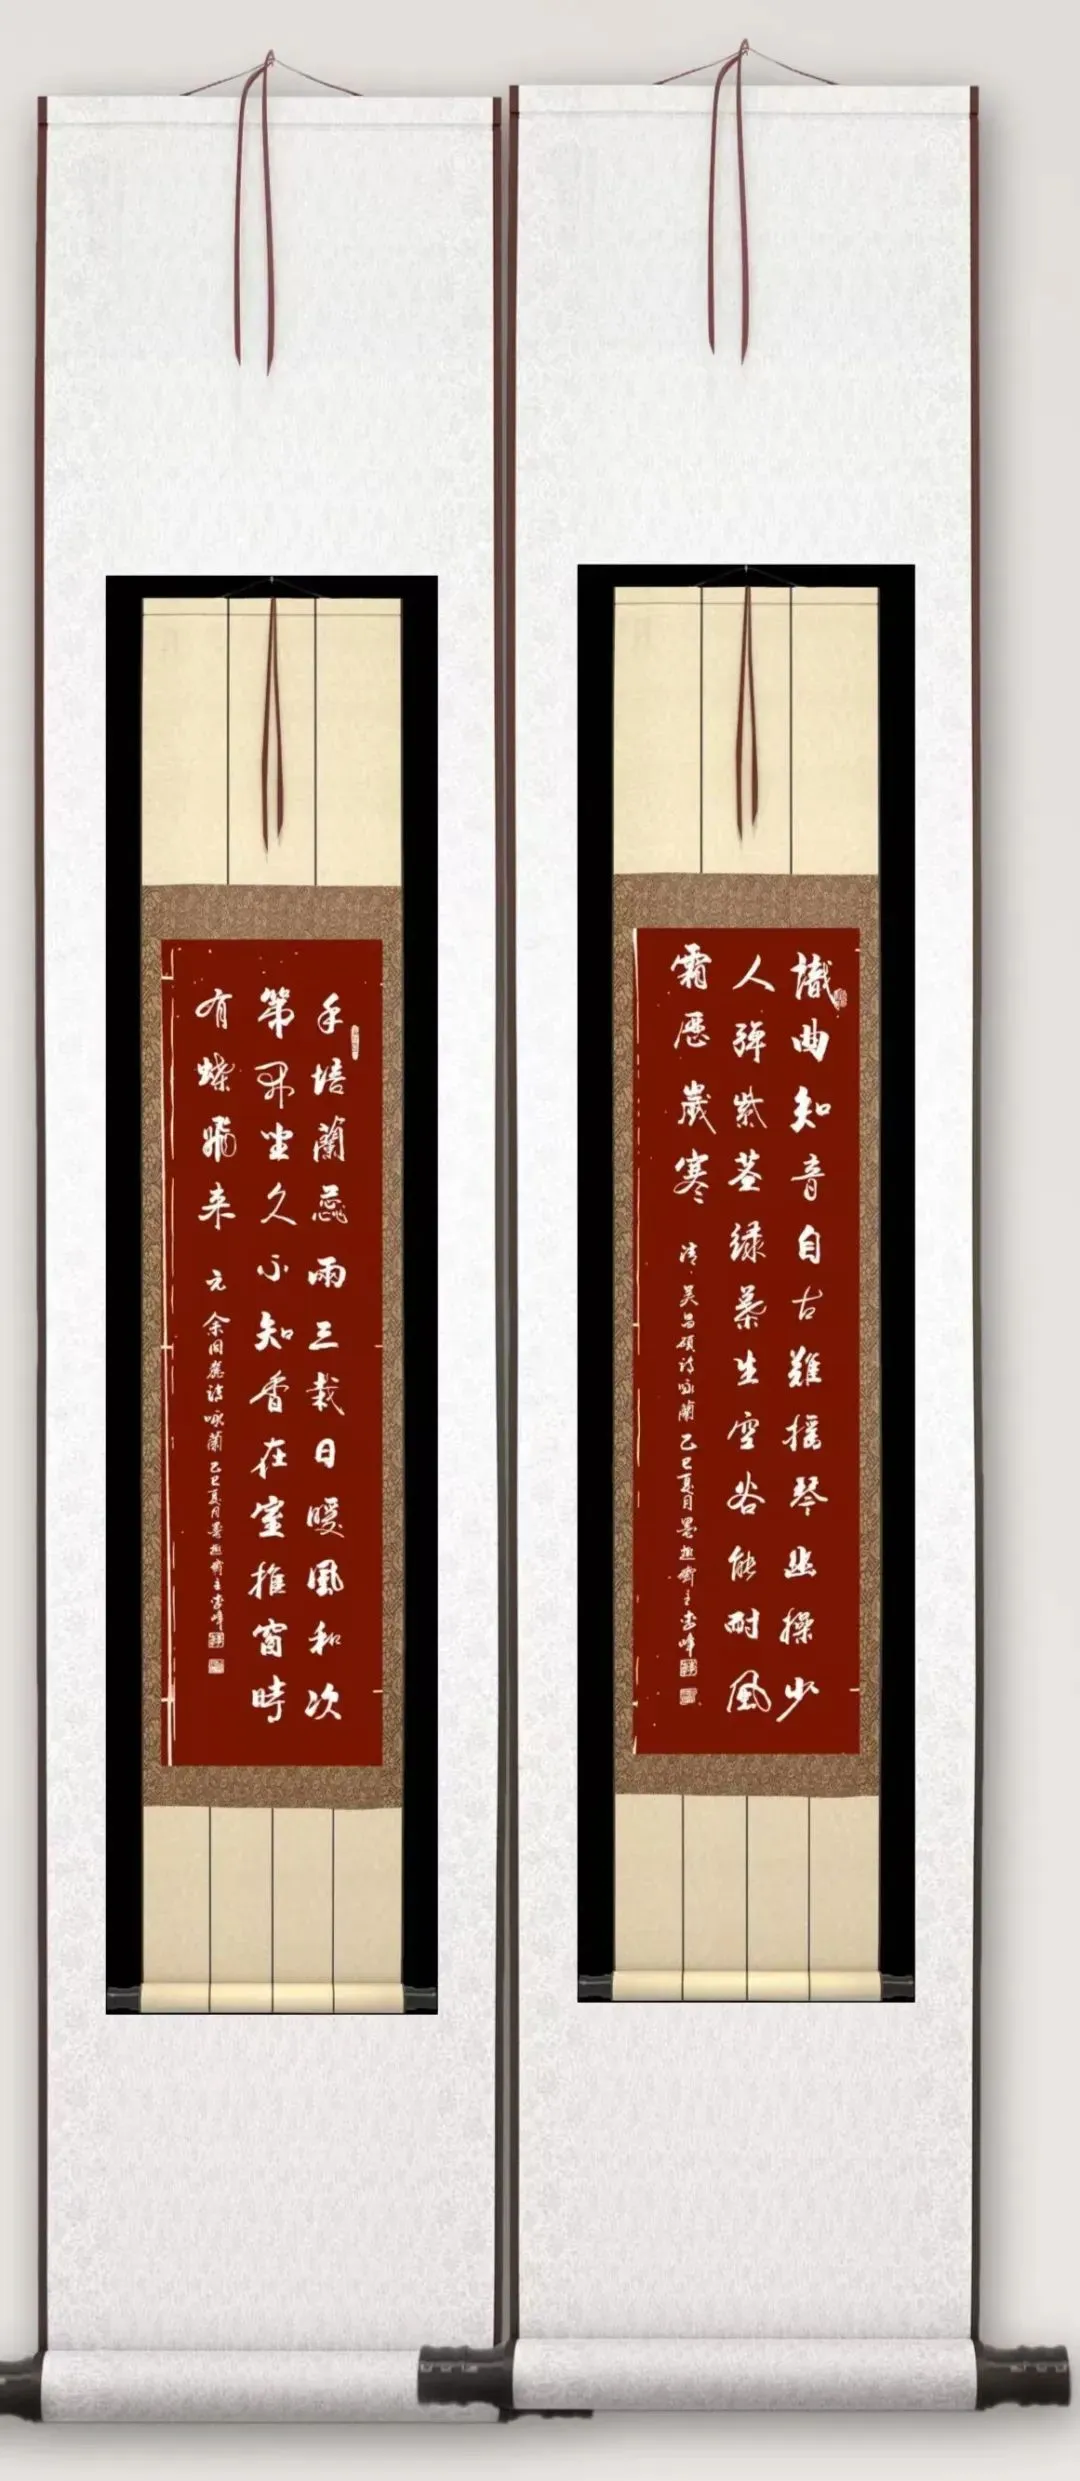 識曲知音自古難摇琴幽操少
人彈紫茎绿葉生空谷能耐風
霜歷歲寒 清 吴昌碩詩咏蘭 乙巳夏月墨趣齋主峰
手培蘭蕊雨三栽日暖風和次
第開坐久不知香在室推窗時
有蝶飛来 元 余同麓詩咏蘭 乙巳夏月墨趣齋主峰